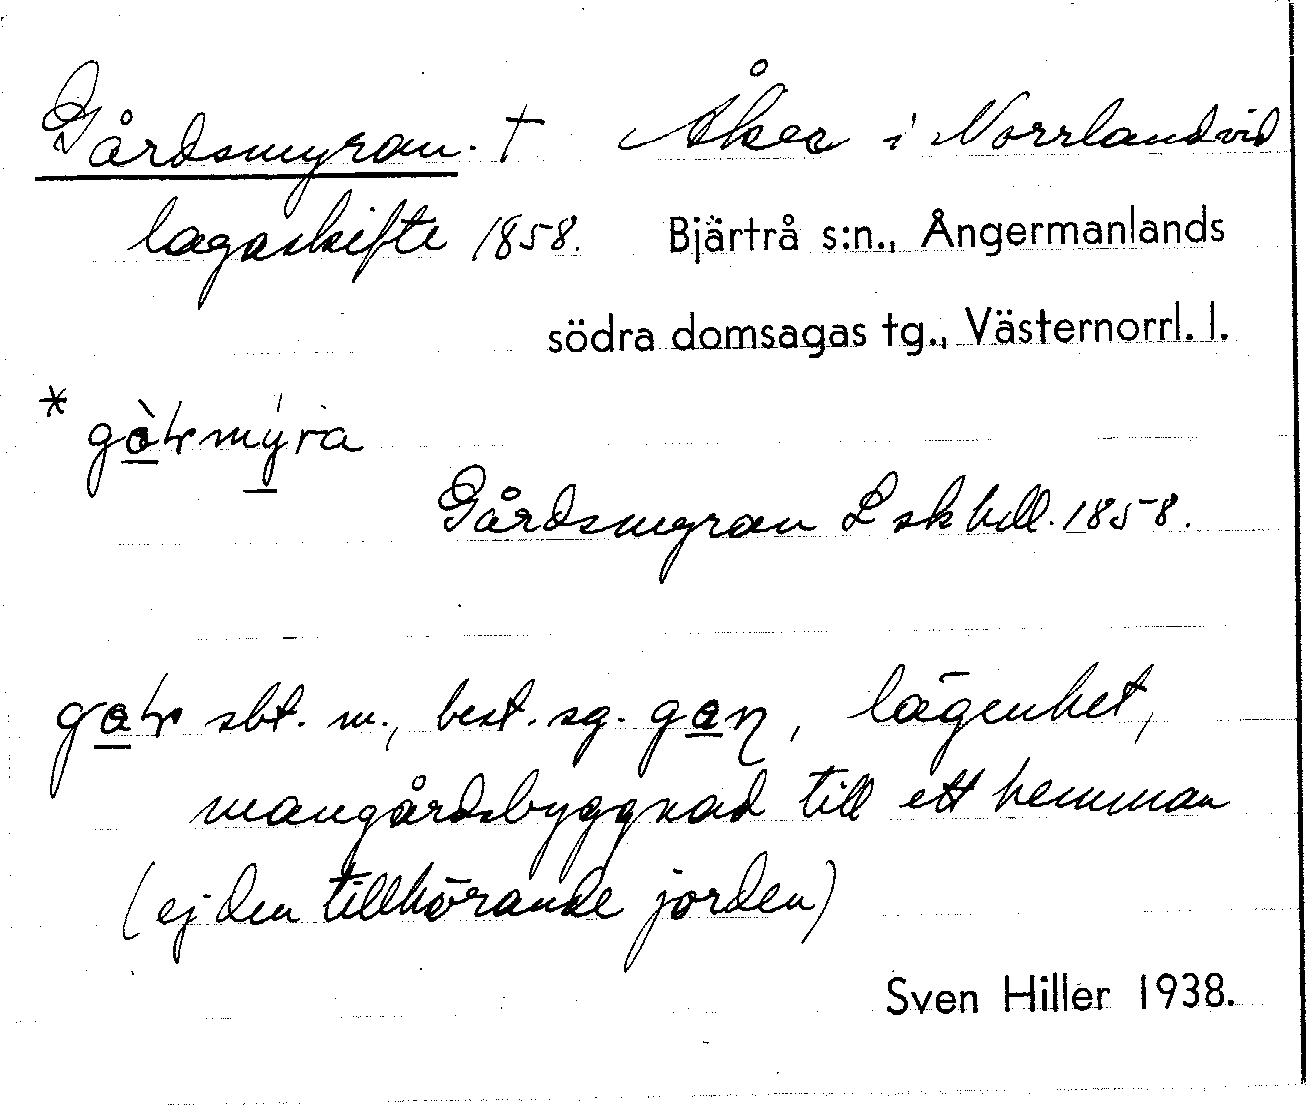 Gårdsmyran. † Åker i Norrland vid
lagaskifte 1858. Bjärtrå s:n., Ångermanlands
södra domsagas tg., Västernorrl. l.
* gàrmýra
Gårdsmyran L sk hdl. 1858.
sbt. m., best. sg. gaɳ, lägenhet,
mangårdsbyggnad till ett hemman
(ej den tillhörande jorden)
Sven Hiller 1938.